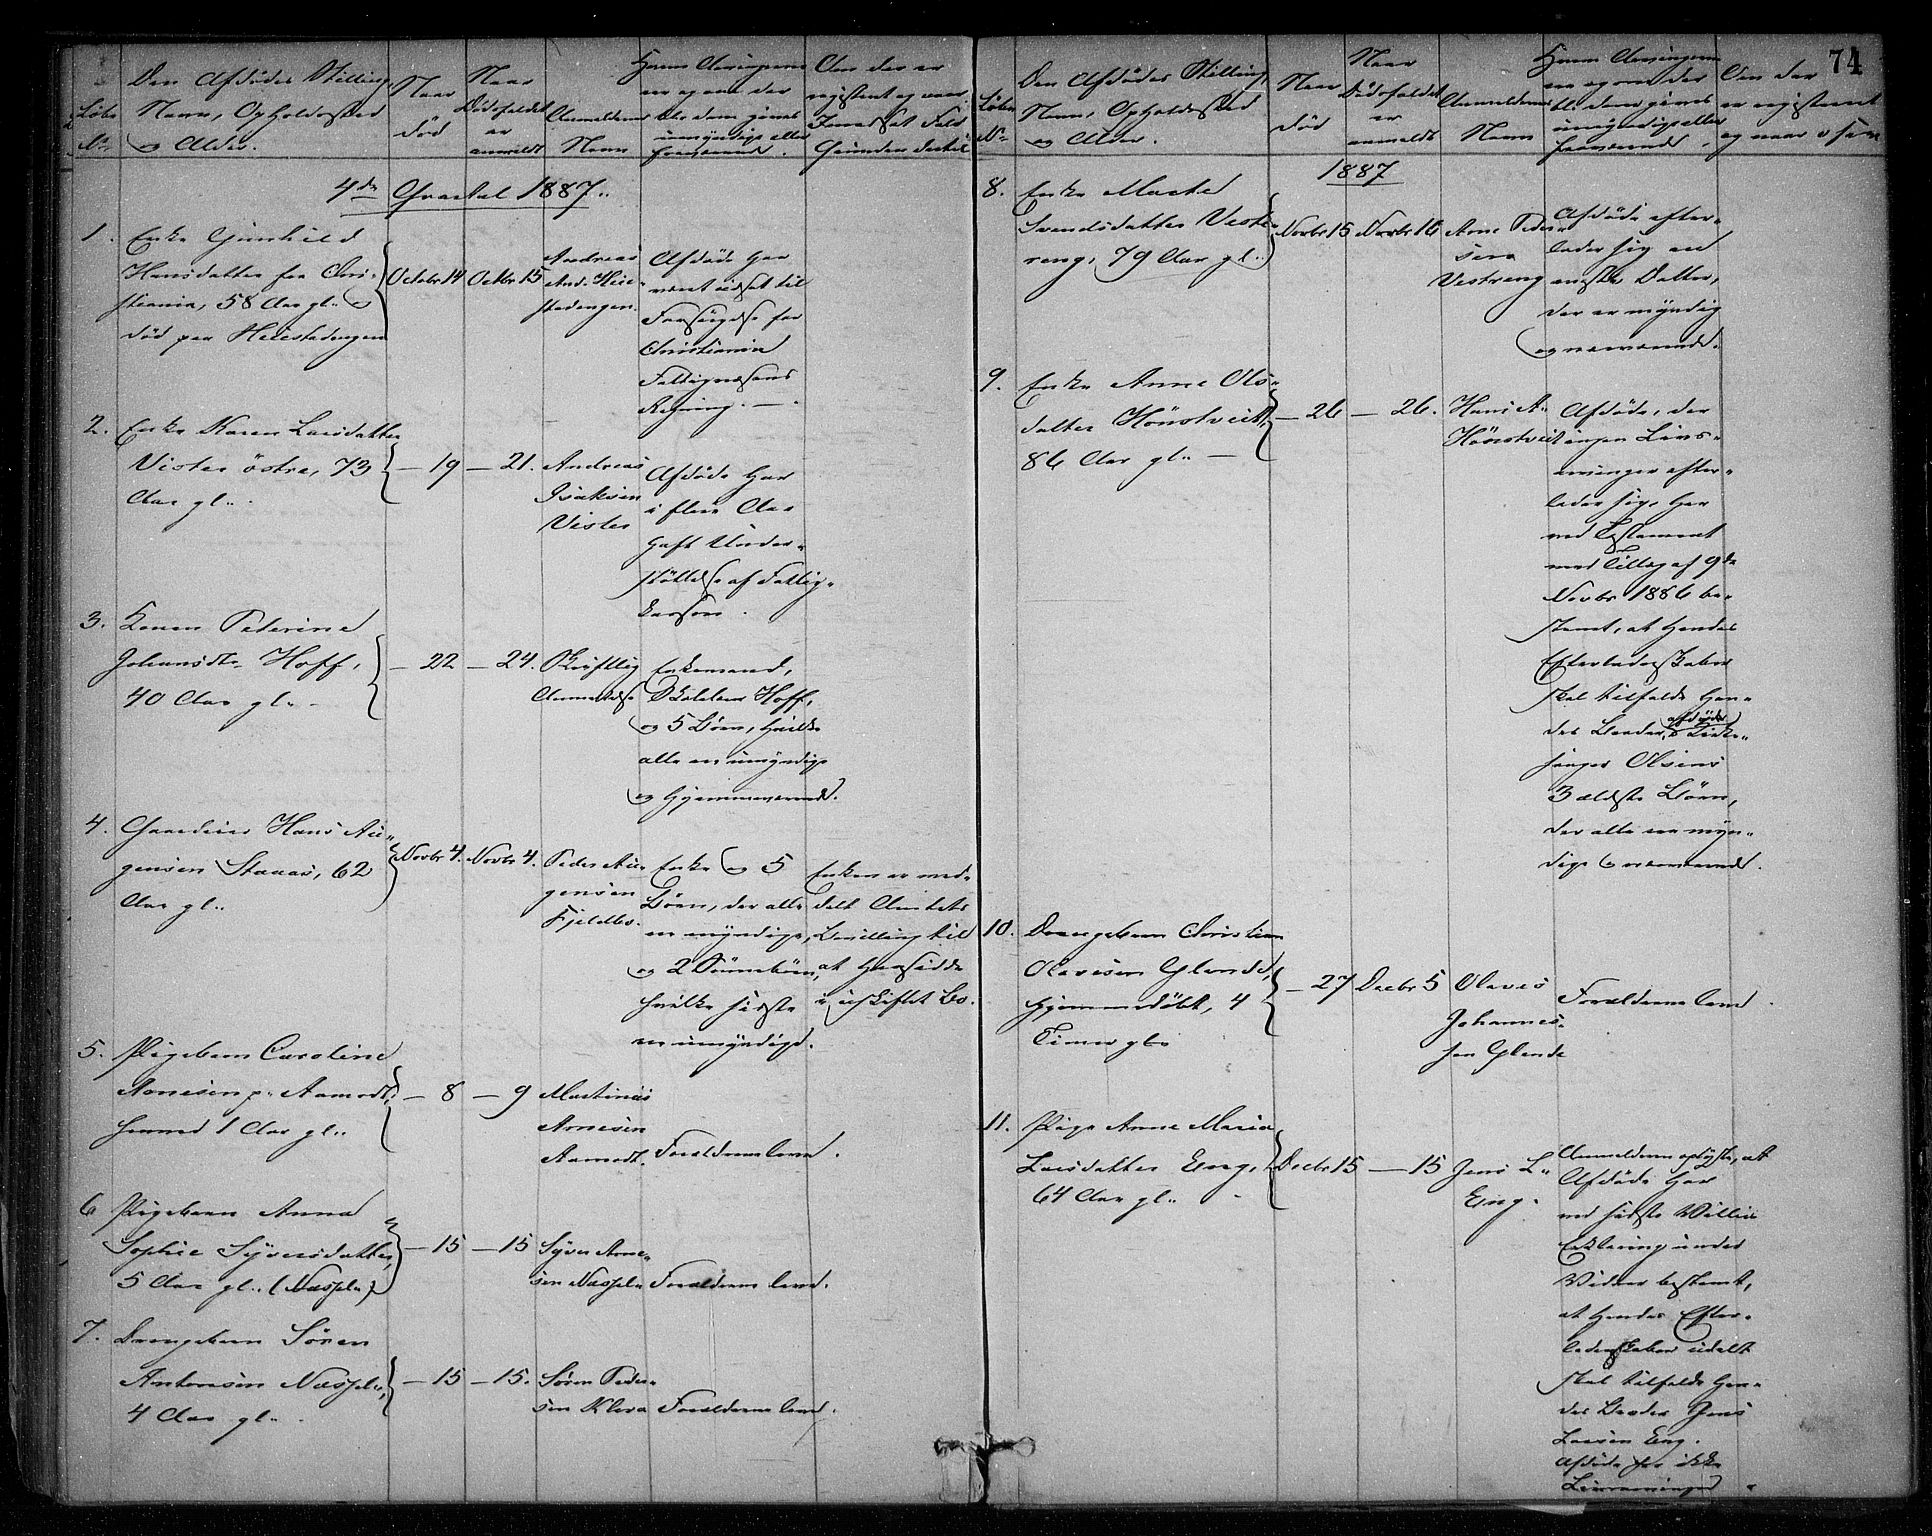 74
Løbe
No
Den Afdødes Stilling,
Navn, Opholdssted
og Alder.
Naar
død
Naar
Dødsfaldet
er
anmeldt
Anmelderens
Navn
Hvem Arvingerne
ere og om der
bl. dem gives
umyndige eller
fraværende.
Om der er
registeret og naar,
I modsat Fald
Grunden dertil
4de Qvartal 1887.
1.
Enke Gunhild
Hansdatter fra Chri-
stiania, 58 Aar gl.
død paa Heiestadengen
Octobr 14
Octbr 15
Andreas
And. Heie-
stadengen.
Afdøde har
været udsat til
Forsørgelse for
Christiania
Fattigvæsens
Regning. —
2.
Enke Karen Larsdatter
Vister østre, 73
Aar gl.
— 19
— 21.
Andreas
Isaksen
Vister
Afdøde har
i flere Aar
havt Under-
støttelse af Fattig-
kassen.
3.
Konen Petrine
Johansdtr Hoff,
40 Aar gl.
— 22
— 24.
Skriftlig
Anmeldelse
Enkemand,
Hoff,
og 5 Børn, hvilke
alle ere umyndige
og hjemmeværende.
4.
Gaardeier Hans Au-
gensen Staaas, 62
Aar gl.
Novbr 4.
Novbr 4.
Peder Au-
gensen
Fjeldbo.
Enke og 5
Børn, der alle
ere myndige,
og 2 Sønnebørn,
hvilke sidste
ere umyndige.
Enken er med-
delt Amtets
Bevilling til
at hensidde
i uskiftet Bo.
5.
Pigebarn Caroline
Arnesen p. Aamodt,
henved 1 Aar gl.
— 8
— 9
Martinus
Arnesen
Aamodt.
Forældrene leve.
6
Pigebarn Anna
Sophie Syversdatter,
5 Aar gl. (Næsset)
— 15
— 15
Syver Arne-
sen Næsset
Forældrene leve.
7.
Drengebarn Søren
Antonsen Næsset,
4 Aar gl.
— 15
— 15.
Søren Peder-
sen Kleva
Forældrene leve.
Løbe
No
Den Afdødes Stilling,
Navn, Opholdssted
og Alder.
Naar
død
Naar
Dødsfaldet
er
anmeldt
Anmelderens
Navn
Hvem Arvingerne
ere og om der
bl. dem gives
umyndige eller
fraværende.
Om der
er registeret
og naar
1887
8.
Enke Marthe
Svendsdatter Vest-
reng, 79 Aar gl.
Novbr 15
Novbr 16
Arne Peder-
sen
Vestreng
Afdøde efter-
lader sig en
eneste Datter,
der er myndig
og nærværende.
9.
Enke Anne Ols-
datter Hönstveit,
86 Aar gl. —
— 26
— 26.
Hans A.
Hönstveit
Afdøde, der
ingen Livs-
arvinger efter-
lader sig, har
ved Testament
med Tillæg af 9de
Novbr 1886 be-
stemt, at hendes
Efterladenskaber
skal tilfalde hen-
des Broder, afdøde Kirke-
sanger Olsens
3 ældste Børn,
der alle ere myn-
dige & nærværende.
10.
Drengebarn Christian
Olavesen Glende,
hjemmedøbt, 4
Timer gl.
— 27
Decbr 5
Olaves
Johannes-
sen Glende
Forældrene leve.
11.
Pige Anne Maria
Larsdatter Eng,
64 Aar gl.
Decbr 15
— 15
Jens L.
Eng.
Anmelderen oplyste, at
Afdøde har
ved sidste Villies
Erklæring under
Vidner bestemt,
at hendes Efter-
ladenskaber udelt
skal tilfalde hen-
des Broder Jens
Larsen Eng.
Afdøde har ikke
Livsarvinger